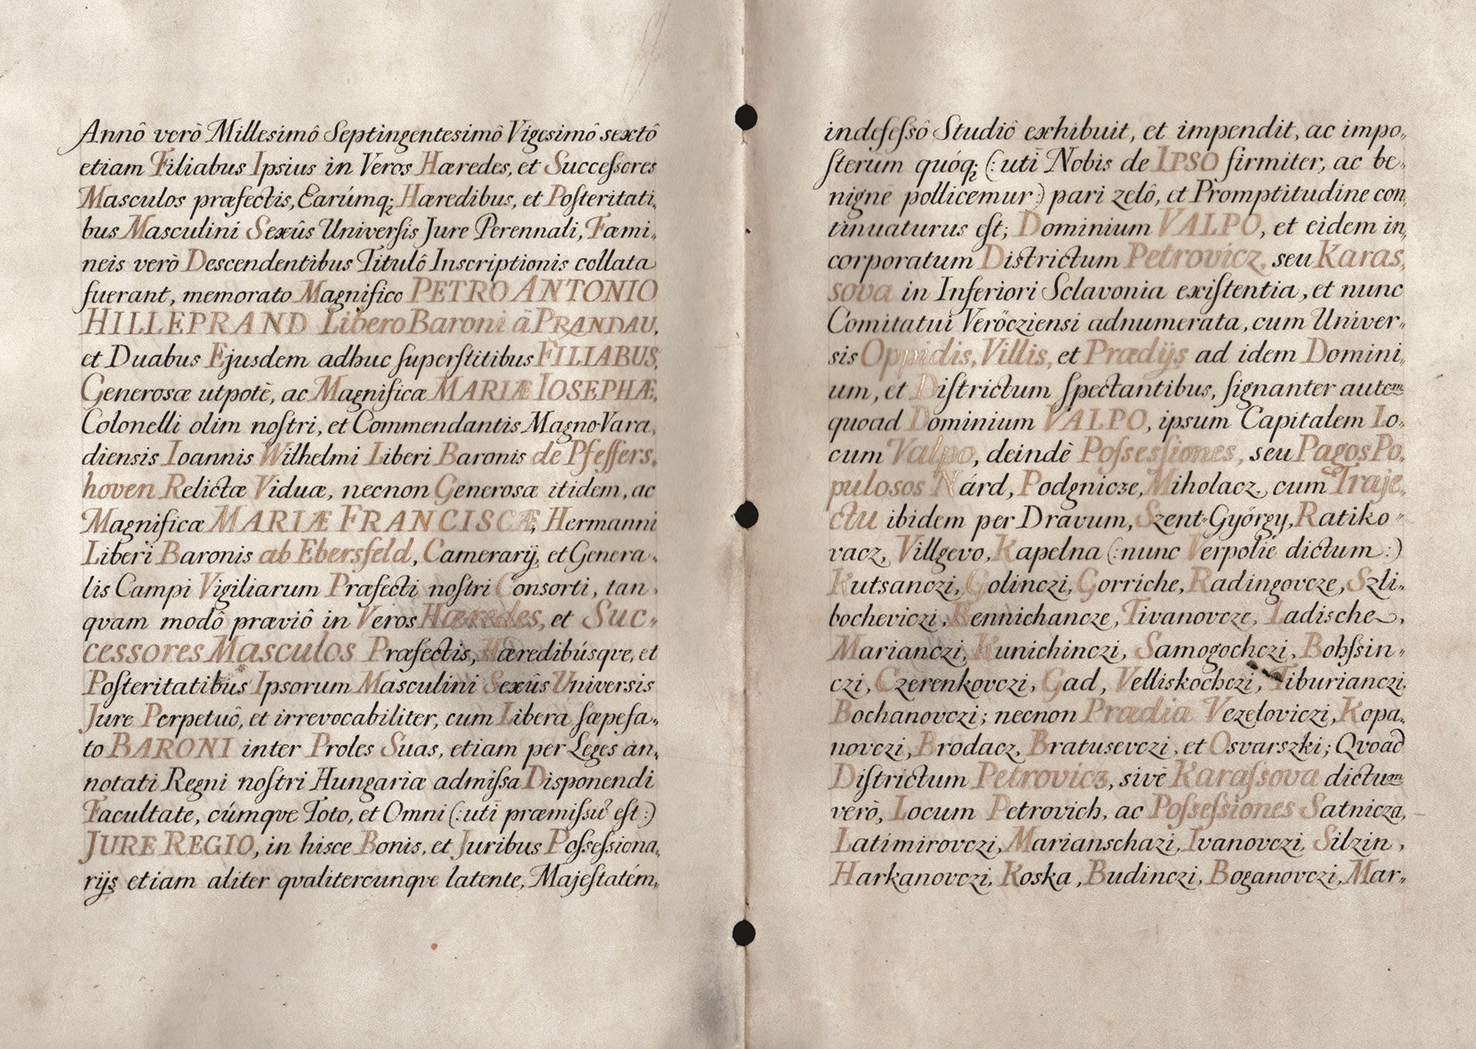 Annô verò Millesimô Septingentesimô Vigesimô sextô
etiam Filiabus Ipsius in Veros Hæredes, et Successores
Masculos præfectis, Earúmq; Hæredibus, et Posteritati,,
bus Masculini Sexûs Universis Jure Perennali, Fæmi,,
neis verò Descendentibus Titulô Inscriptionis collata
fuerant, memorato Magnifico PETRO ANTONIO
HILLEPRAND Libero Baroni â PRANDAU,
et Duabus Ejusdem adhuc superstitibus FILIABUS,
Generosæ utpotè, ac Magnificæ MARIÆ IOSEPHÆ,
Colonelli olim nostri, et Commendantis Magno-Vara,,
diensis Ioannis Wilhelmi Liberi Baronis de Pfeffers,,
hoven Relictæ Viduæ, necnon Generosæ itidem, ac
Magnificæ MARIÆ FRANCISCÆ, Hermanni
Liberi Baronis ab Ebersfeld, Camerarij, et Genera,,
lis Campi Vigiliarum Præfecti nostri Consorti, tan,,
qvam modô præviô in Veros Hæredes, et Suc,,
cessores Masculos Præfectis, Hæredibúsqve, et
Posteritatibus Ipsorum Masculini Sexûs Universis
Jure Perpetuô, et irrevocabiliter, cum Libera sæpefa,,
to BARONI inter Proles Suas, etiam per Leges an,,
notati Regni nostri Hungariæ admissa Disponendi
Facultate, cúmqve Toto, et Omni (: uti præmissũ est :)
JURE REGIO, in hisce Bonis, et Juribus Possessiona,,
rijs etiam aliter qvalitercunqve latente, Majestatém,,
indefessô Studiô exhibuit, et impendit, ac impo,,
sterum quóq; (: uti Nobis de IPSO firmiter, ac be,,
nigne pollicemur) pari zelô, et Promptitudine con,,
tinuaturus est; Dominium VALPO, et eidem in,,
corporatum Districtum Petrovicz, seu Karas,,
sova in Inferiori Sclavonia existentia, et nunc
Comitatui Verőcziensi adnumerata, cum Univer,,
sis Oppidis, Villis, et Prædijs ad idem Domini,,
um, et Districtum spectantibus, signanter autem
quoad Dominium VALPO, ipsum Capitalem Lo,,
cum Valpo, deindè Possessiones, seu Pagos Po,,
pulosos Nárd, Podgnicze, Miholacz, cum Traje,,
ctu ibidem per Dravum, Szent-György, Ratiko,,
vacz, Villgevo, Kapelna (: nunc Verpolie dictum :)
Kutsanczi, Golinczi, Gorriche, Radingovcze, Szli,,
bocheviczi, Bennichancze, Tivanovcze, Ladische,
Marianczi, Kunichinczi, Samogochczi, Bohssin,,
czi, Czerenkovczi, Gad, Velliskochczi, Tiburianczi,
Bochanovczi; necnon Prædia Vezeloviczi, Kopa,,
novczi, Brodacz, Bratusevczi, et Osvarszki; Qvoad
Districtum Petrovicz, sivè Karassova dictum
verò, Locum Petrovich, ac Possessiones Satnicza,
Latimirovczi, Marianschazi, Ivanovczi, Silzin,
Harkanovczi, Koska, Budinczi, Boganovczi, Mar,,